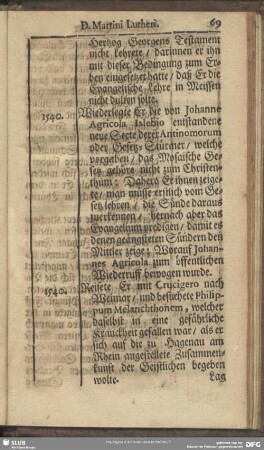 D. Martini Lutheri. 69
Hertzog Georgens Testament
nicht kehrete / darinnen er ihn
mit dieser Bedingung zum Er-
ben eingesetzet hatte / daß Er die
Evangelische Lehre in Meissen
nicht dulten solte.
1540. Wiederlegte Er die von Johanne
Agricola Islebio entstandene
neue Secte derer Antinomorum
oder Gesetz-Stürmer / welche
vorgeben / das Mosaische Ge-
setz gehöre nicht zum Christen-
thum; Dahero Er ihnen zeige-
te / man müsse erstlich vom Ge-
setz lehren / die Sünde daraus
zuerkennen / hernach aber das
Evangelium predigen / damit es
denen geängsteten Sündern den
Mittler zeige; Worauf Johan-
nes Agricola zum öffentlichen
Wiederruff bewogen wurde.
1540. Reisete Er mit Crucigero nach
Weimar / und besuchete Philip-
pum Melanchthonem / welcher
daselbst in eine gefährliche
Kranckheit gefallen war / als er
sich auf die zu Hagenau am
Rhein angestellete Zusammen-
kunft der Geistlichen begeben
wolte.
Lag
SLUB
DFG